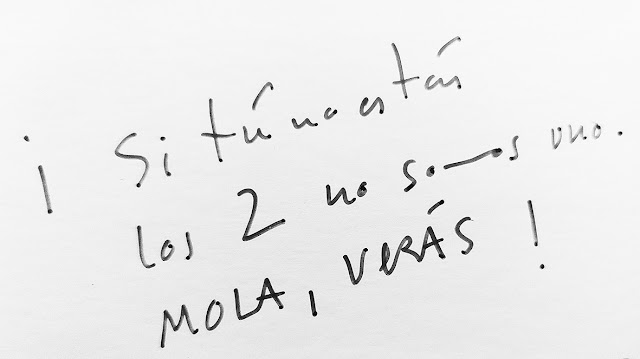 ¡ Si tú no estás
los 2 no somos uno.
MOLA, VERÁS !